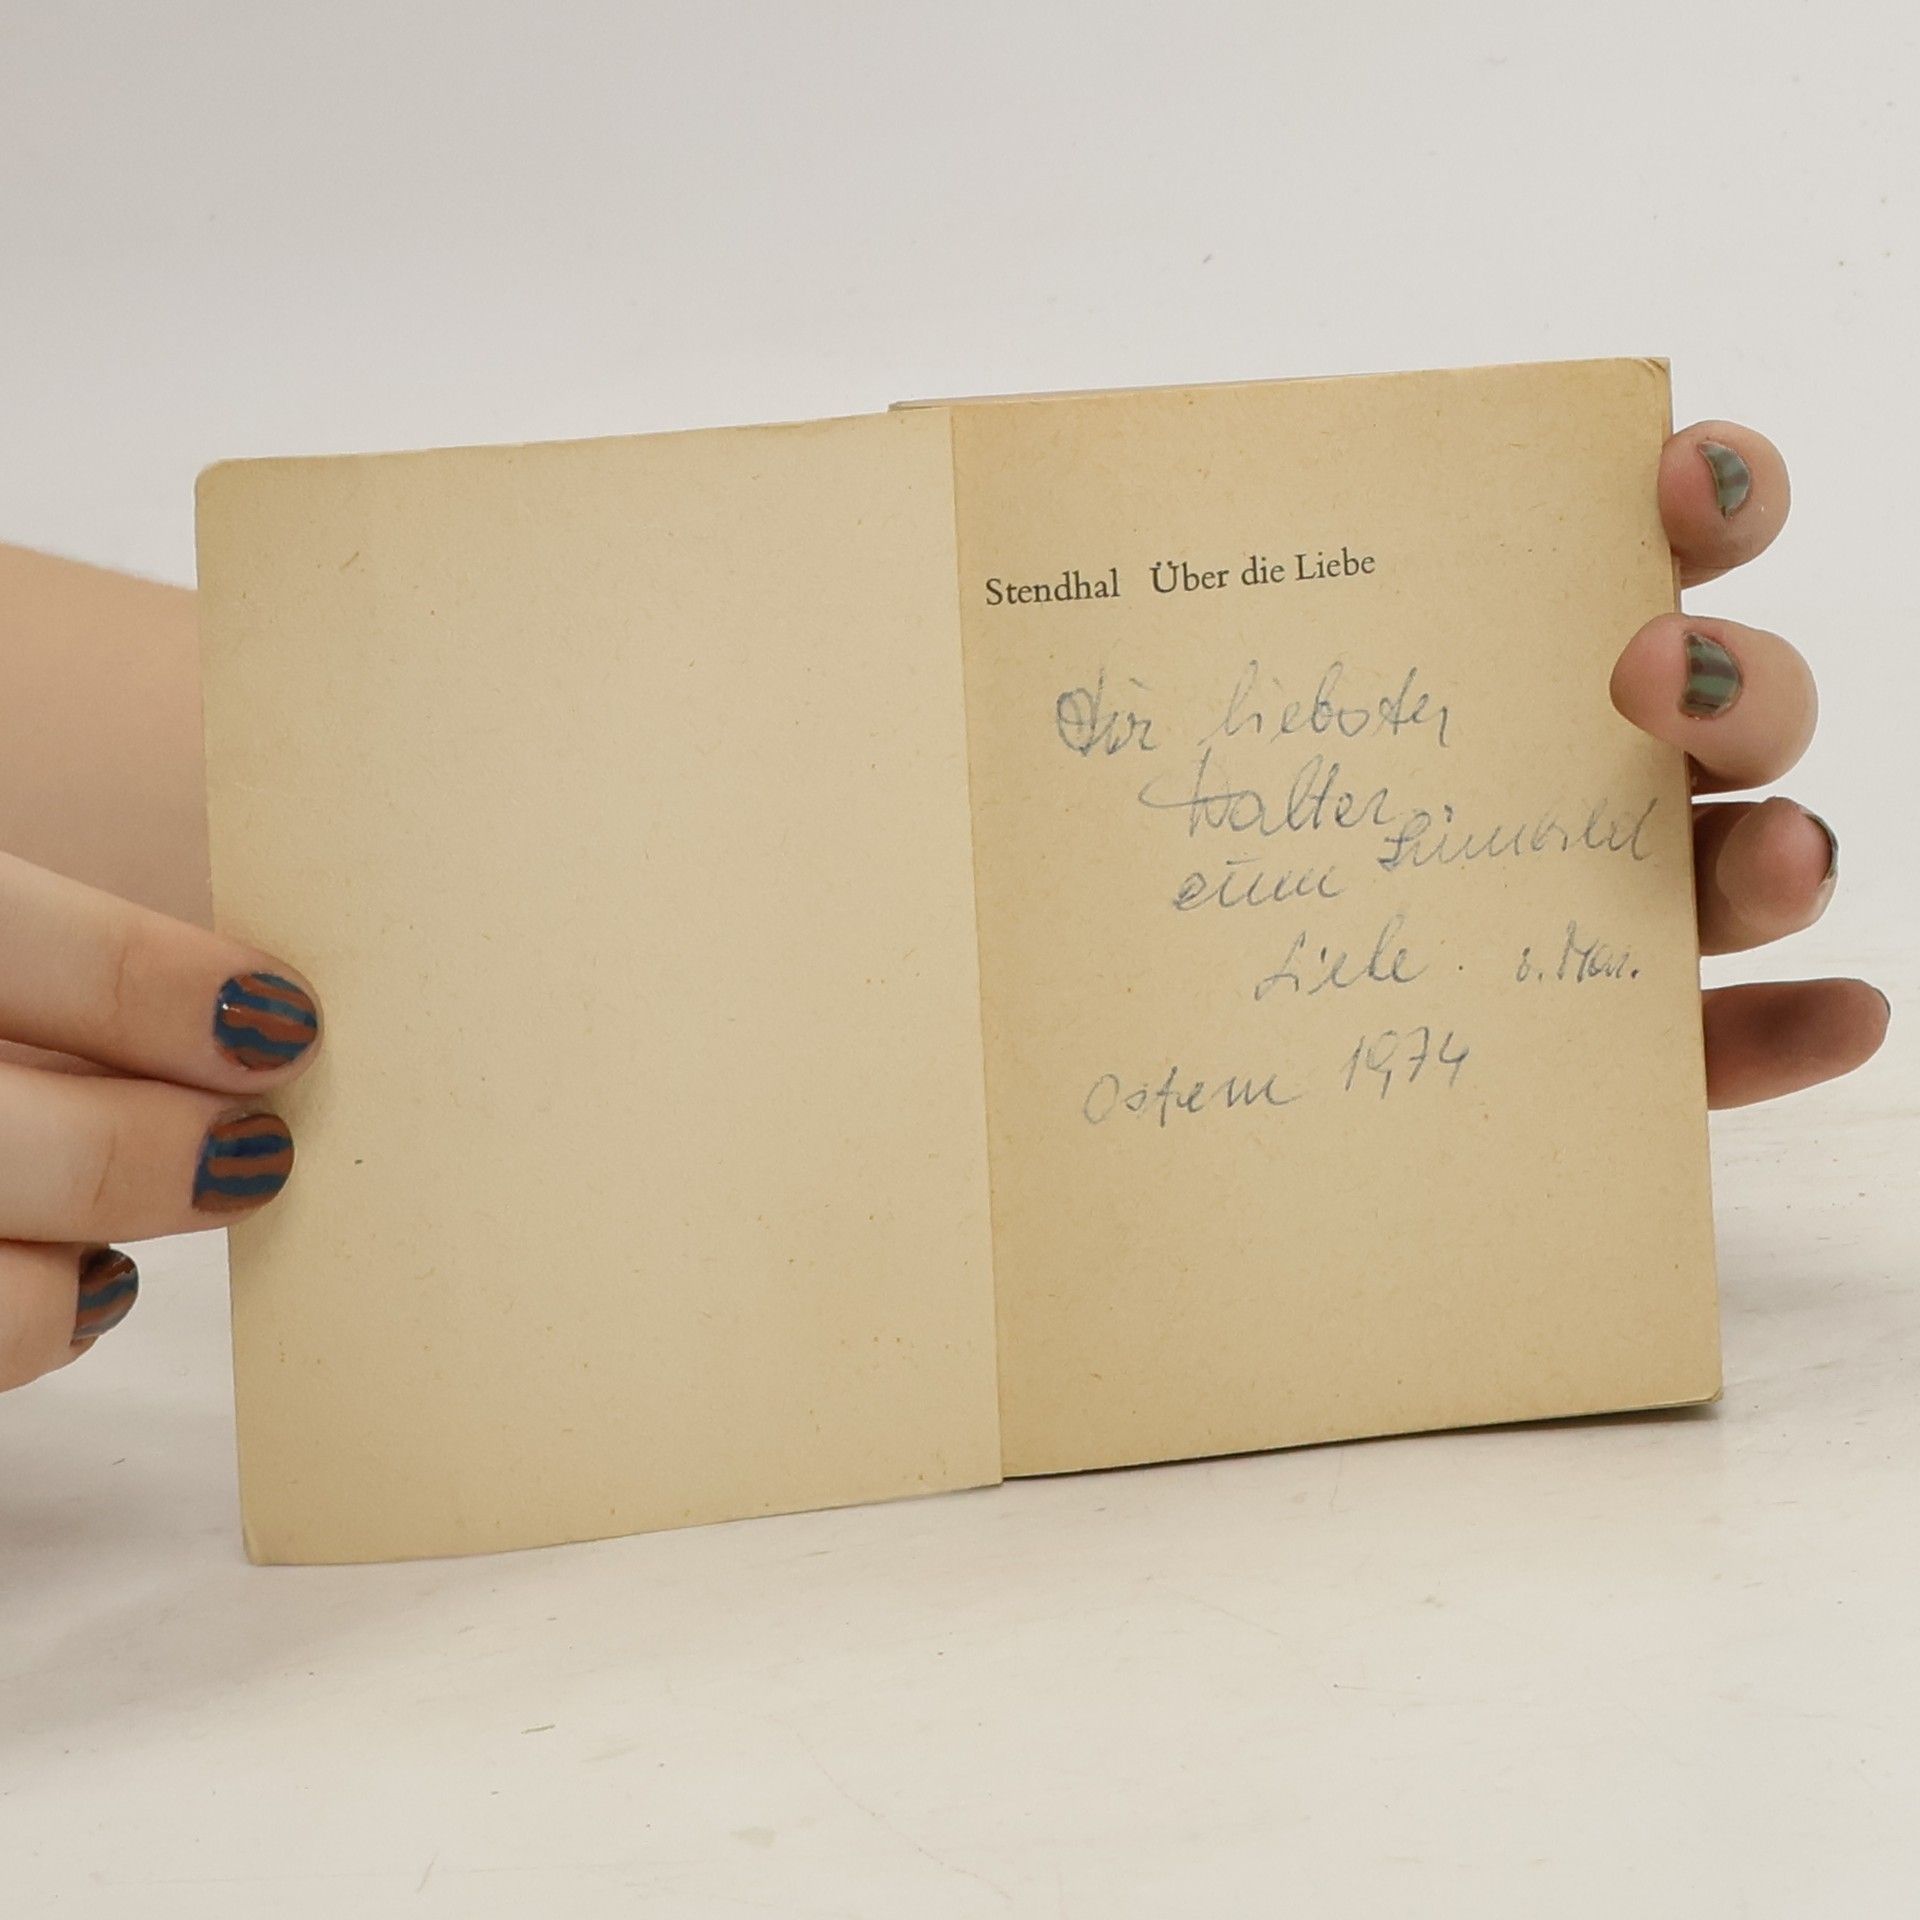 Stendhal Über die Liebe
Dir liebster
Walter
zum Sinnbild
Liebe.
Ostern 1974